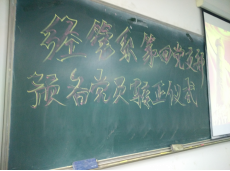 经管系第四党支部
预备党员转正仪式